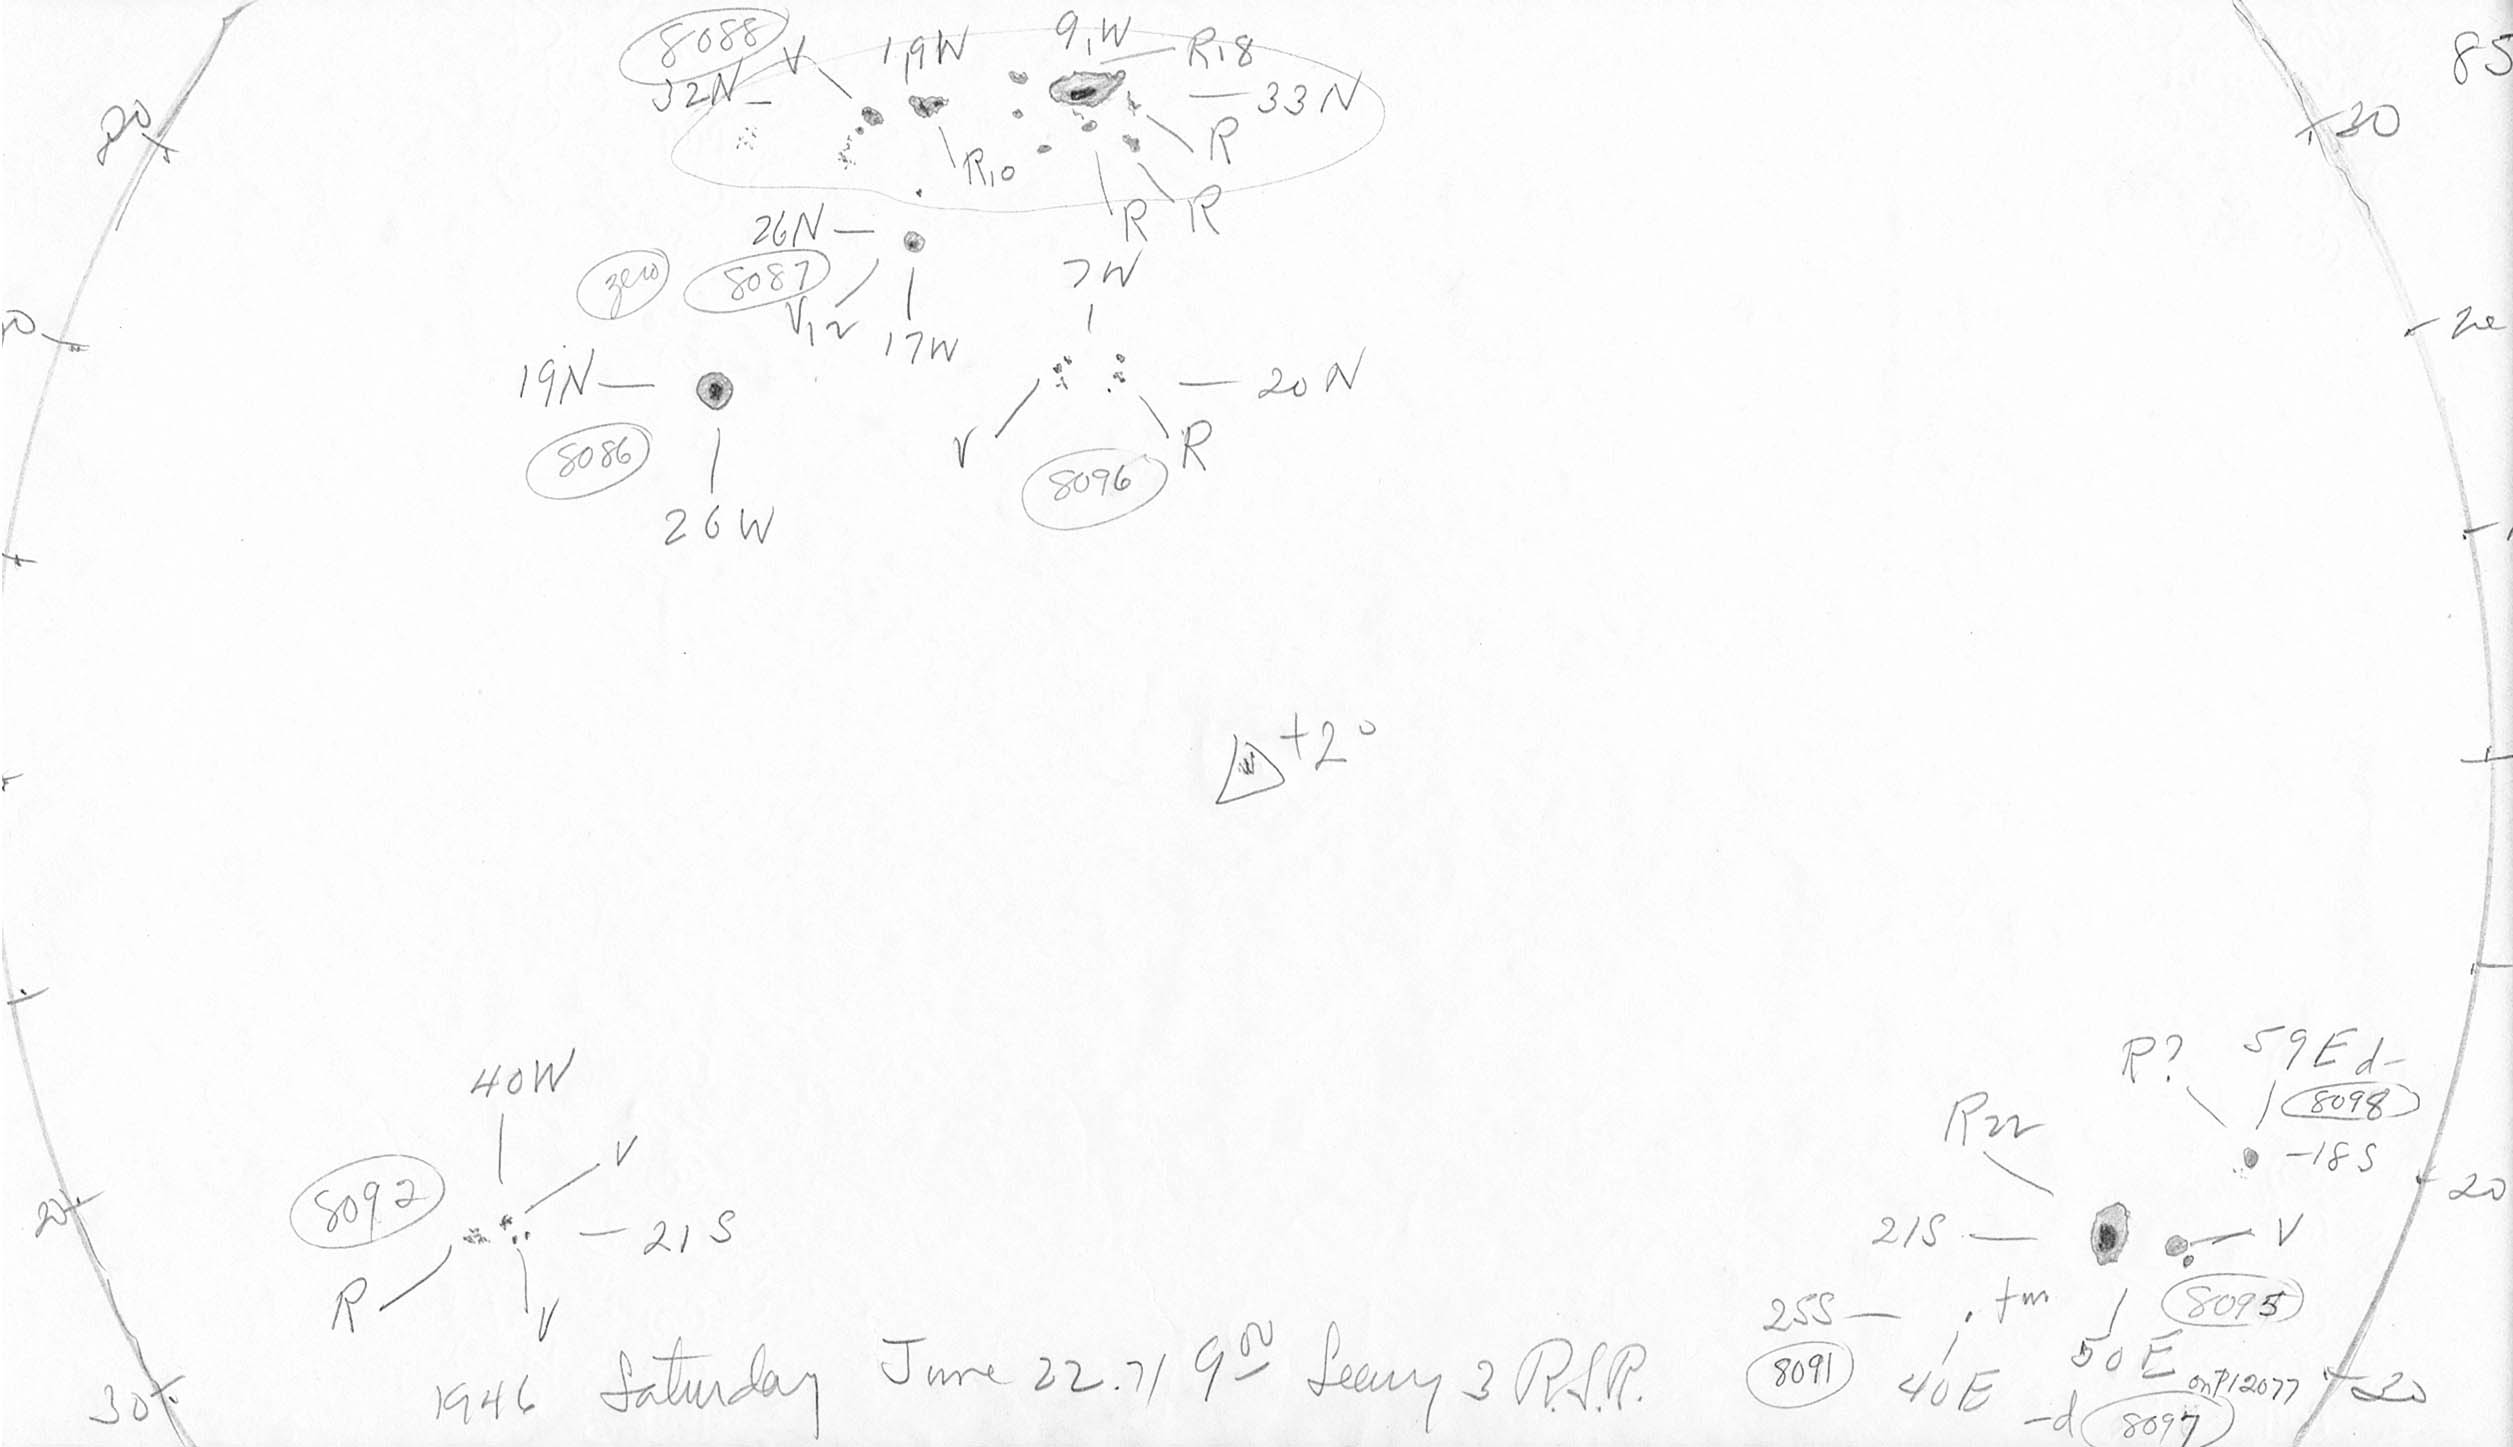 8088
V
19W
9,W
R18
85
32N
33N
30
R
R10
30
R R
26N
zero
8087
V12
17W
7W
20
19N
20N
V
R
8086
8096
26W
+2°
R?
59E d-
8098
40W
R22
-18S
V
8092
20
20
21S
21S
V
R
V
25S
+m
8095
8091
40E
50E
on Pl 2077
-d 8097
30
30
1946 Saturday June 22.71 9 00 Seeing 3 R.S.R.